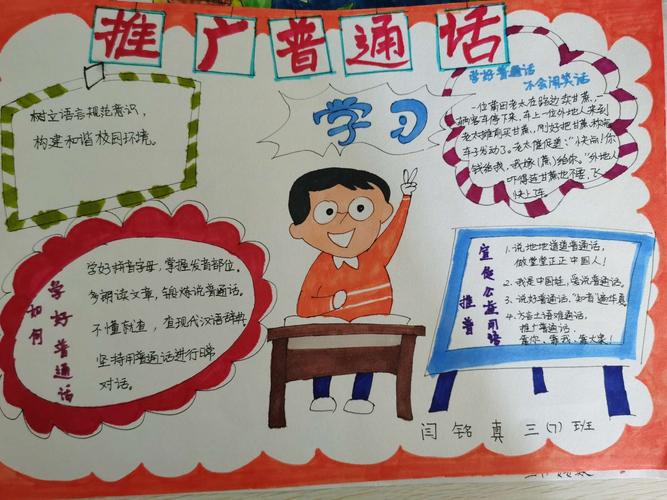 推广普通话
树立语言规范意识，
构建和谐校园环境。
学习
学好普通话
不会闹笑话
一位莆田老太在路边卖甘蔗，一
辆客车停下来，车上一位外地人来到
老太摊前买甘蔗，刚好把甘蔗称好
车子发动了。老太催促道："快点！你
钱给我，我嫁（蔗）给你。"外地人
吓得连甘蔗也不要，飞
快上车。
如何
学好普通话
学好拼音字母，掌握发音部位。
多朗读文章，锻炼说普通话。
不懂就查，查现代汉语辞典
坚持用普通话进行日常
对话。
推普
宣传公益用语
1. 说地地道道普通话，
做堂堂正正中国人！
2. 我是中国娃，爱说普通话。
3. 说好普通话，"知音"遍华夏
4. 方言土语难通话，
推广普通话，
靠你、靠我、靠大家！
闫铭真 三(7)班